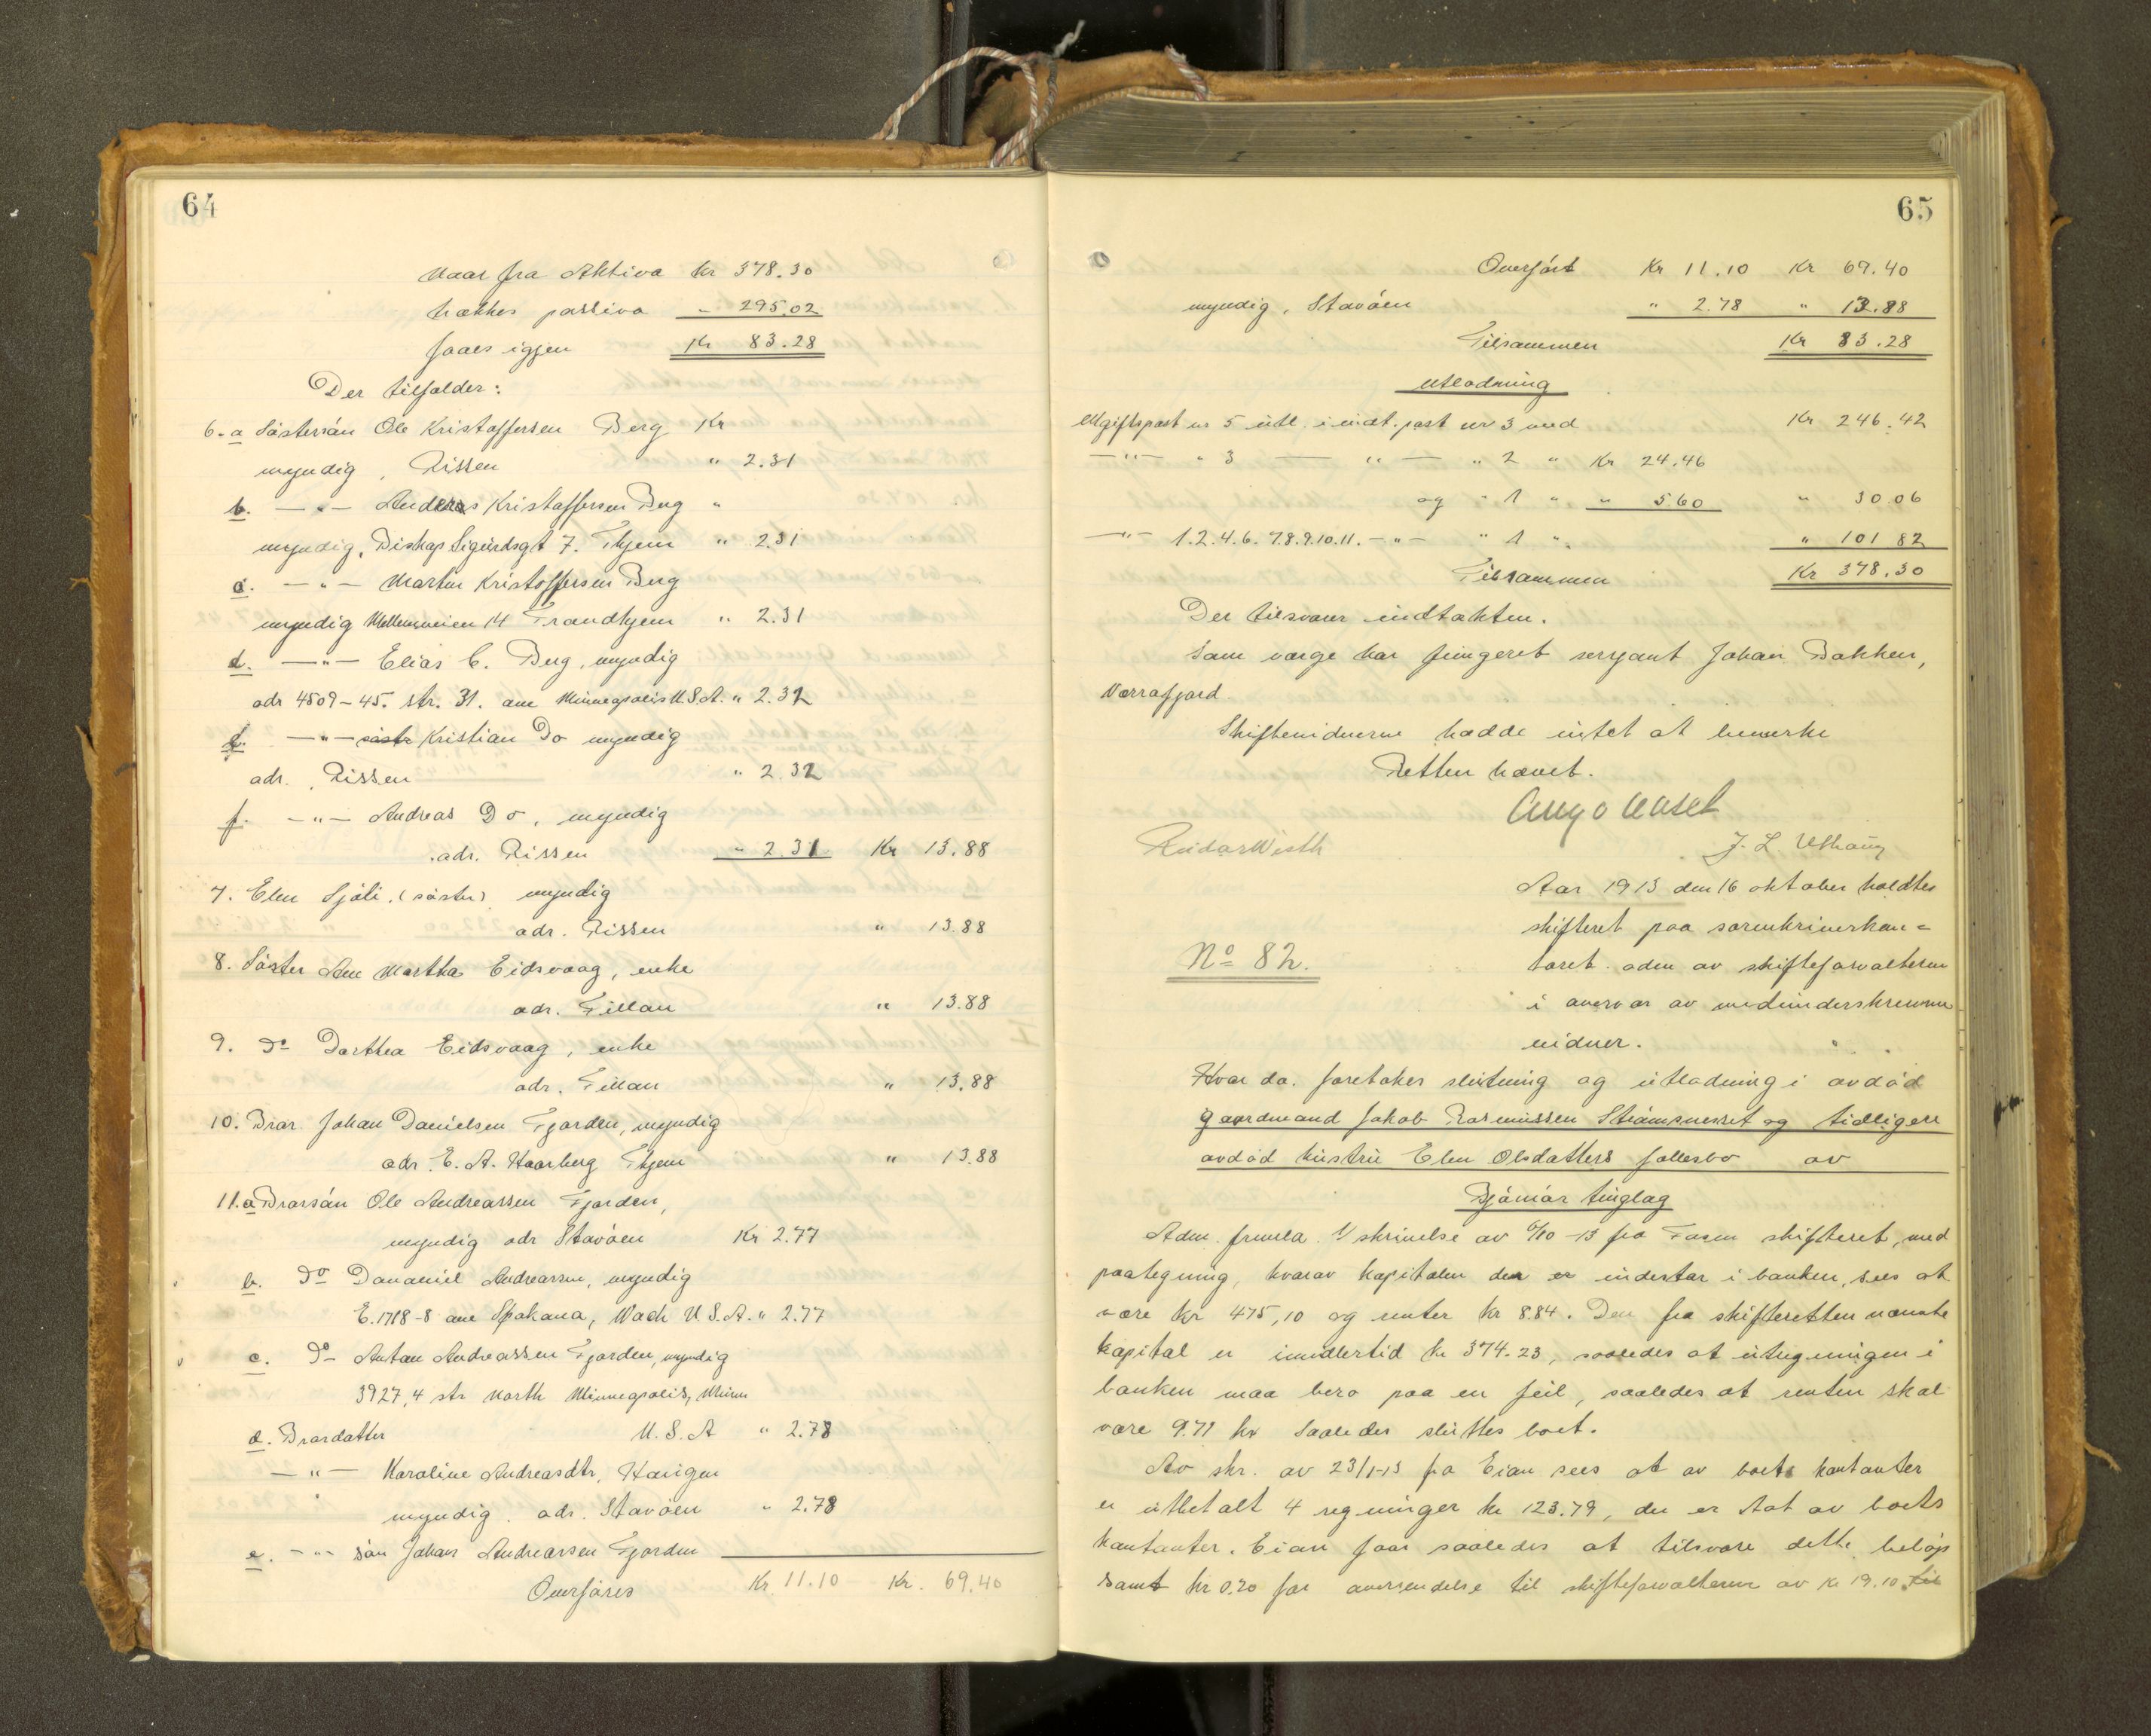 64
Naar fra Aktiva kr 378.30
trækkes passiva " 295.02
faaes igjen Kr 83.28
Der tilfalder:
6. a Søstersøn Ole Kristoffersen Berg Kr
myndig, Rissen " 2.31
b. —"— Anders Kristoffersen Berg "
myndig, Biskop Sigurdsgt 7. Thjem " 2.31
c. —"— Martin Kristoffersen Berg
myndig Mellemveien 14 Trondhjem " 2.31
d. —"— Elias C. Berg, myndig
adr 4509-45. str. 31. ave Minneapolis U.S.A. " 2.32
e. —"— søstr Kristian Do myndig
adr. Rissen " 2.32
f. —"— Andreas Do, myndig
adr. Rissen " 2.31 Kr 13.88
7. Elen Sjøli, (søster) myndig
adr. Rissen " 13.88
8. Søster Ane Martha Eidsvaag, enke
adr. Fillan " 13.88
9. Do Dorthea Eidsvaag, enke
adr. Fillan " 13.88
10. Bror Johan Danielsen Fjorden, myndig
adr. E. A. Haarberg Thjem " 13.88
11. a Brorsøn Ole Andreassen Fjorden,
myndig adr Stavøen Kr 2.77
b. Do Dananiel Andreassen, myndig
E. 1718-8 ave Spokana, Wach U.S.A. " 2.77
c. Do Anton Andreassen Fjorden, myndig
3927, 4 str North Minneapolis, Minn
U.S.A " 2.78
d. Brordatter
—"— Karoline Andreasdtr, Haugen
myndig. adr. Stavøen " 2.78
e. —"— søn Johan Andreassen Fjorden
Overføres Kr 11.10 Kr. 69.40
65
Overført Kr 11.10 Kr 69.40
myndig, Stavøen " 2.78 " 13.88
Tilsammen Kr 83.28
Utlodning
Utgiftspost nr 5 utl. i indt. post nr 3 med Kr 246.42
—"— " 3 — " — " 2 " Kr 24.46
og " 1 " " 5.60 " 30.06
—"— 1.2.4.6.7.8.9.10.11. —"— " 1 ". " 101 82
Tilsammen Kr 378.30
Der tilsvarer indtækten.
Som værge har fungeret sersjant Johan Bakken,
Norrafjord.
Skiftevidnerne hadde intet at bemerke
Retten hævet.
Reidar Wisth J. L. Uthaug
Aar 1913 den 16 oktober holdtes
skifteret paa sorenskriverkon=
toret. aden av skifteforvalteren
i overvær av medunderskrevne
vidner.
No 82.
Hvor da. foretokes slutning og utlodning i avdød
gaardmand Jakob Rasmussen Strømsnesset og tidligere
avdød hustru Elen Olsdatters fællesbo av
Bjørnør tinglag
Adm. fremla. 1/ skrivelse av 6/10 -13 fra Fosen skifteret, med
paategning, hvorav kapitalen der er indestar i banken, sees at
være kr 475,10 og renter kr 8.84. Den fra skifteretten nævnte
kapital er imidlertid kr 374.23, saaledes at utregningen i
banken maa bero paa en feil, saaledes at renten skal
være 9.71 kr Saaledes sluttes boet.
Av skr. av 23/1-13 fra Eian sees at av boets kontanter
er utbetalt 4 regninger kr 123.79, der er tat av boets
kontanter. Eian faar saaledes at tilsvare dette beløp
samt kr 0.20 for oversendelse til skifteforvalteren av kr 19.10. til